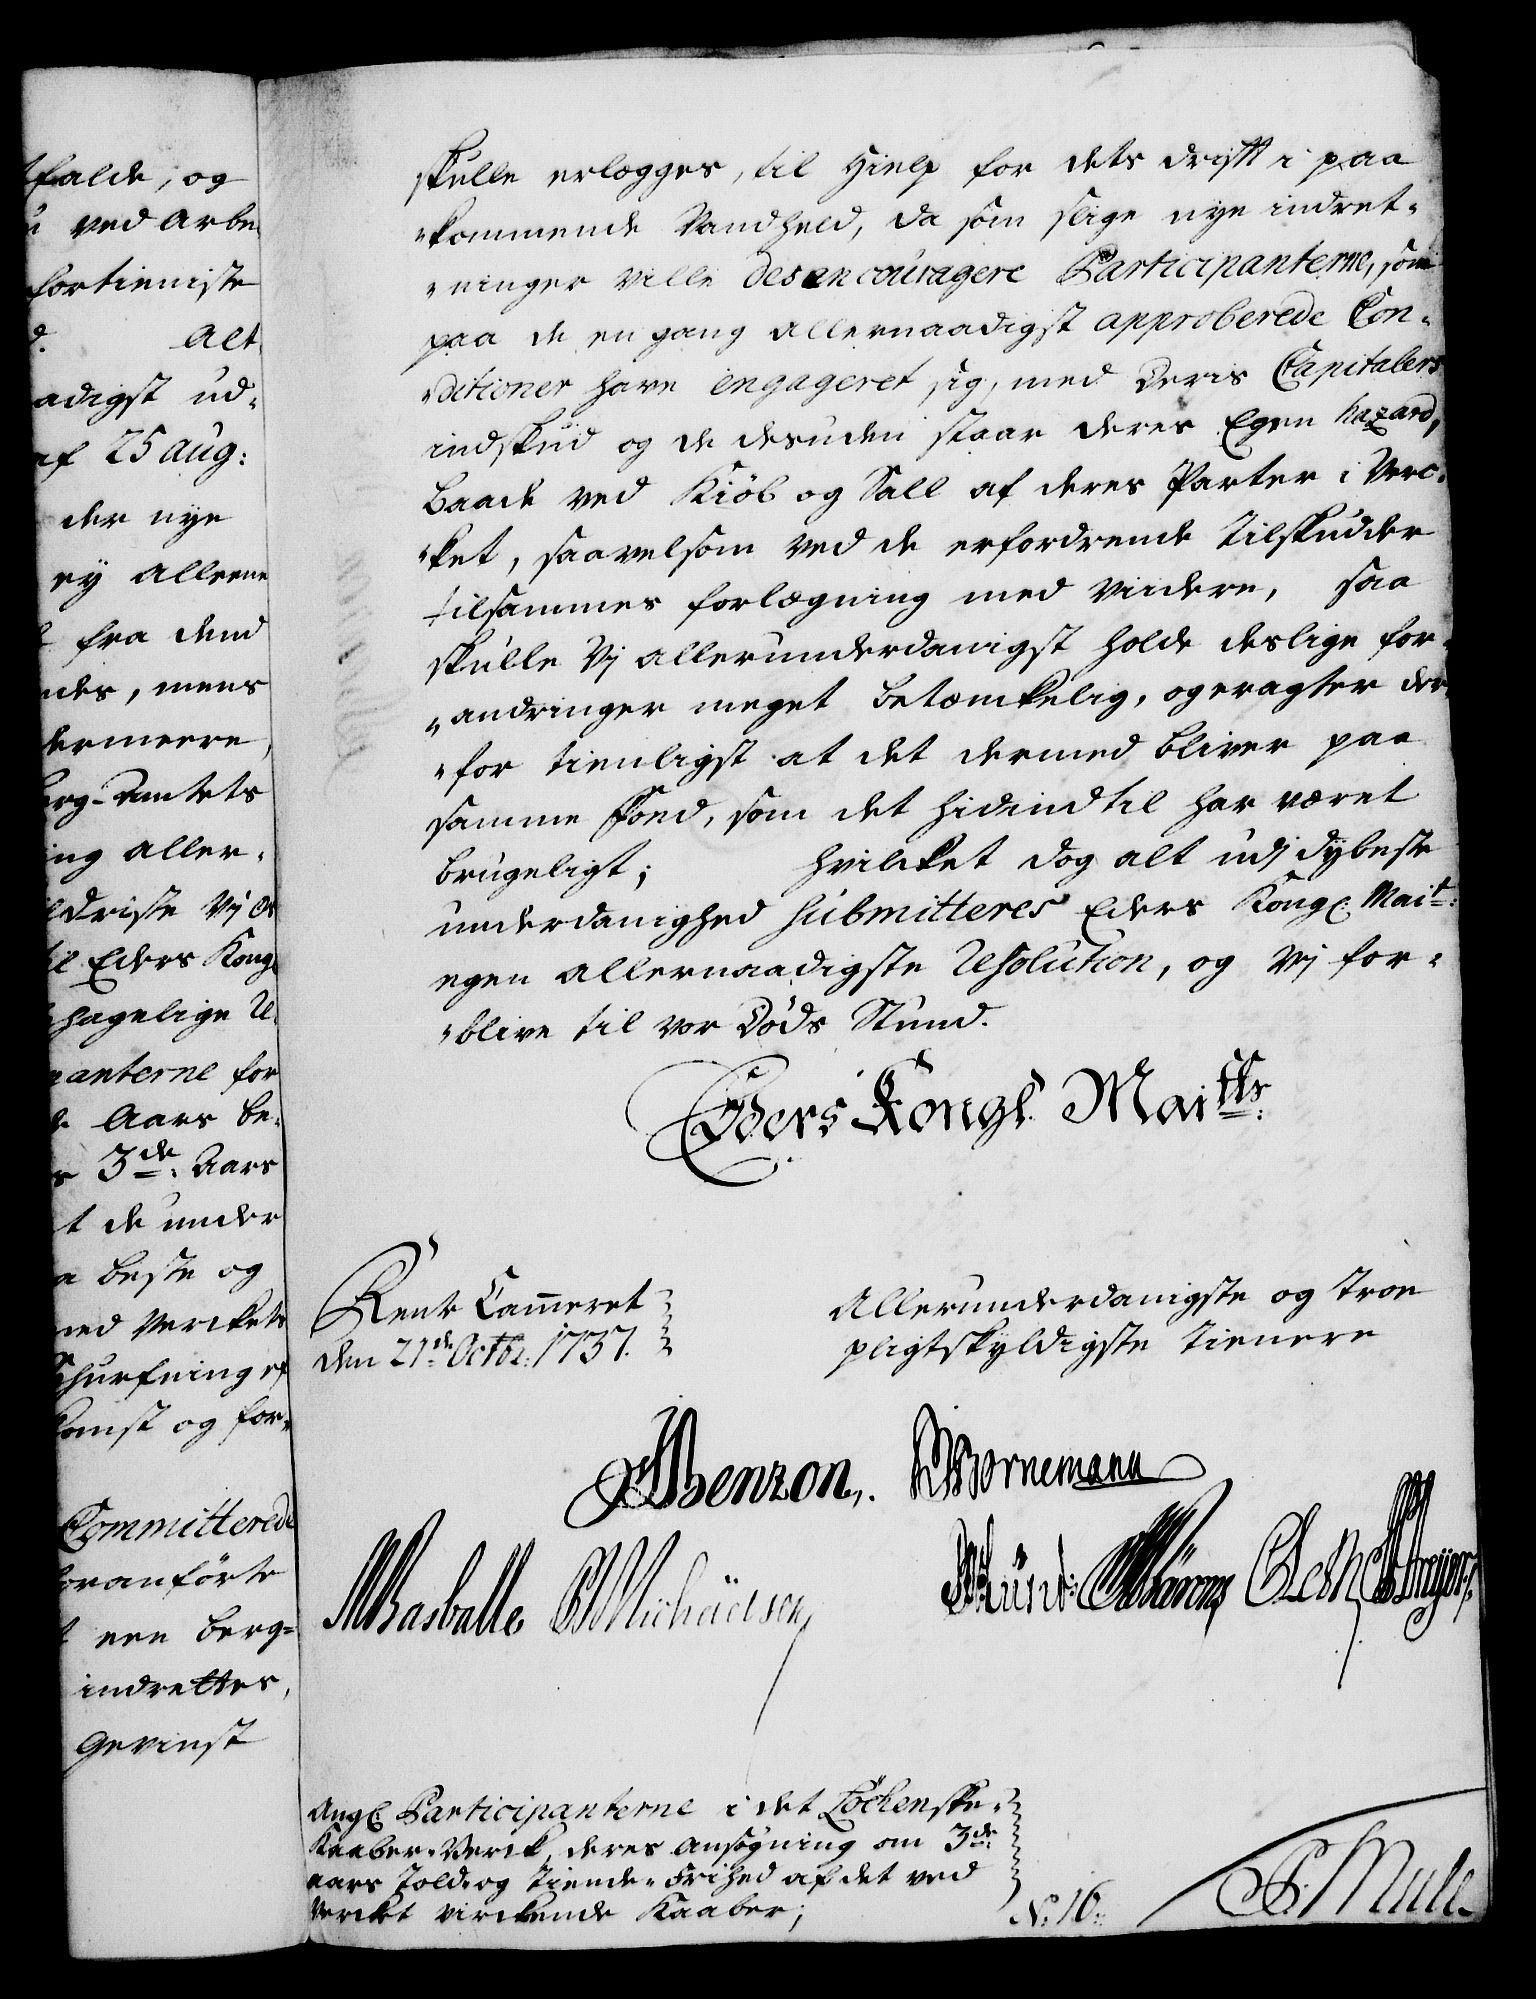 tfalde, og
ved Arbe
fortieniste
Alt
adigst ud-
af 25 aug:
der nye
ey alleene
fra dend
ndes, mens
dermeere,
erg-Amtets
ing aller-
driste vj os
til Eders Kongl
hagelige R
panterne for
Aars be-
3de: Aars
t de under
beste og
ned Verckets
Schurfning ef
komst og for-
Committerede
foranförte
een berg-
indrettes,
gevinst
skulle erlægges, til Hielp for dets drifft i paa
"kommende Vandheld, da som slige nye indret-
"ninger ville desencouragere Participanterne, som
paa de en gang allernaadigst approberede Con-
"ditioner have engageret sig, med Deris Capitalers
indskud og de desuden staar deres Egen hazard,
baade ved Kiöb og Sall af deres Parter i Verc-
"ket, saavelsom ved de erfordrende Tilskudder
tilsammes forlægning med viidere, saa
skulle Vj allerunderdanigst holde deslige for-
"andringer meget betænkelig, og eragter der-
"for tienligst at det dermed bliver paa
samme Foed, som det hidindtil har været
brugeligt; hvilcket dog alt udj dybeste
underdanighed submitteres Eders Kongl: Mait:
egen allernaadigste Resolution, og Vj for-
"blive til vor Döds Stund.
Eders Kongl. Maitts:
Rente Cammeret
den 21de Octbr: 1737.
Allerunderdanigste og troe
pligtskyldigste tienere
Benzon.
Bornemann
Basballe Michäelsen
Angl: Participanterne i det Löckenske
Kaaber-Verck, deres Ansögning om 3de
aars Told og Tiende-Frihed af det ved
Vercket virckende Kaaber;
No: 16:
P: Mule